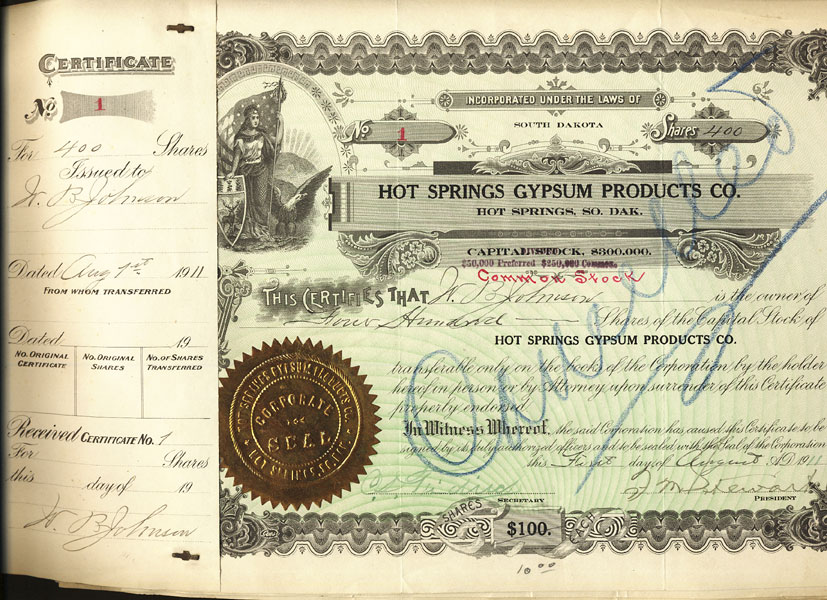 CERTIFICATE
No 1
For 400 Shares
Issued to
W. B. Johnson
Dated Aug 1st 1911
FROM WHOM TRANSFERRED
Dated 19
NO. ORIGINAL CERTIFICATE
NO. ORIGINAL SHARES
NO. OF SHARES TRANSFERRED
Received CERTIFICATE NO. 1
For Shares
this day of 19
W. B. Johnson
INCORPORATED UNDER THE LAWS OF
SOUTH DAKOTA
No 1
Shares 400
HOT SPRINGS GYPSUM PRODUCTS CO.
HOT SPRINGS, SO. DAK.
CAPITAL STOCK, $300,000.
DIVIDED
$50,000 Preferred $250,000 Common.
Common Stock
THIS CERTIFIES THAT W. B. Johnson is the owner of
Four Hundred Shares of the Capital Stock of
HOT SPRINGS GYPSUM PRODUCTS CO.
transferable only on the books of the Corporation by the holder
hereof in person or by Attorney upon surrender of this Certificate
properly endorsed.
In Witness Whereof, the said Corporation has caused this Certificate to be
signed by its duly authorized officers and to be sealed with the Seal of the Corporation
this First day of August A.D. 1911
J. M. Stewart
SECRETARY
PRESIDENT
HOT SPRINGS GYPSUM PRODUCTS CO.
CORPORATE
SEAL
SHARES $100. EACH
10 00
Cancelled